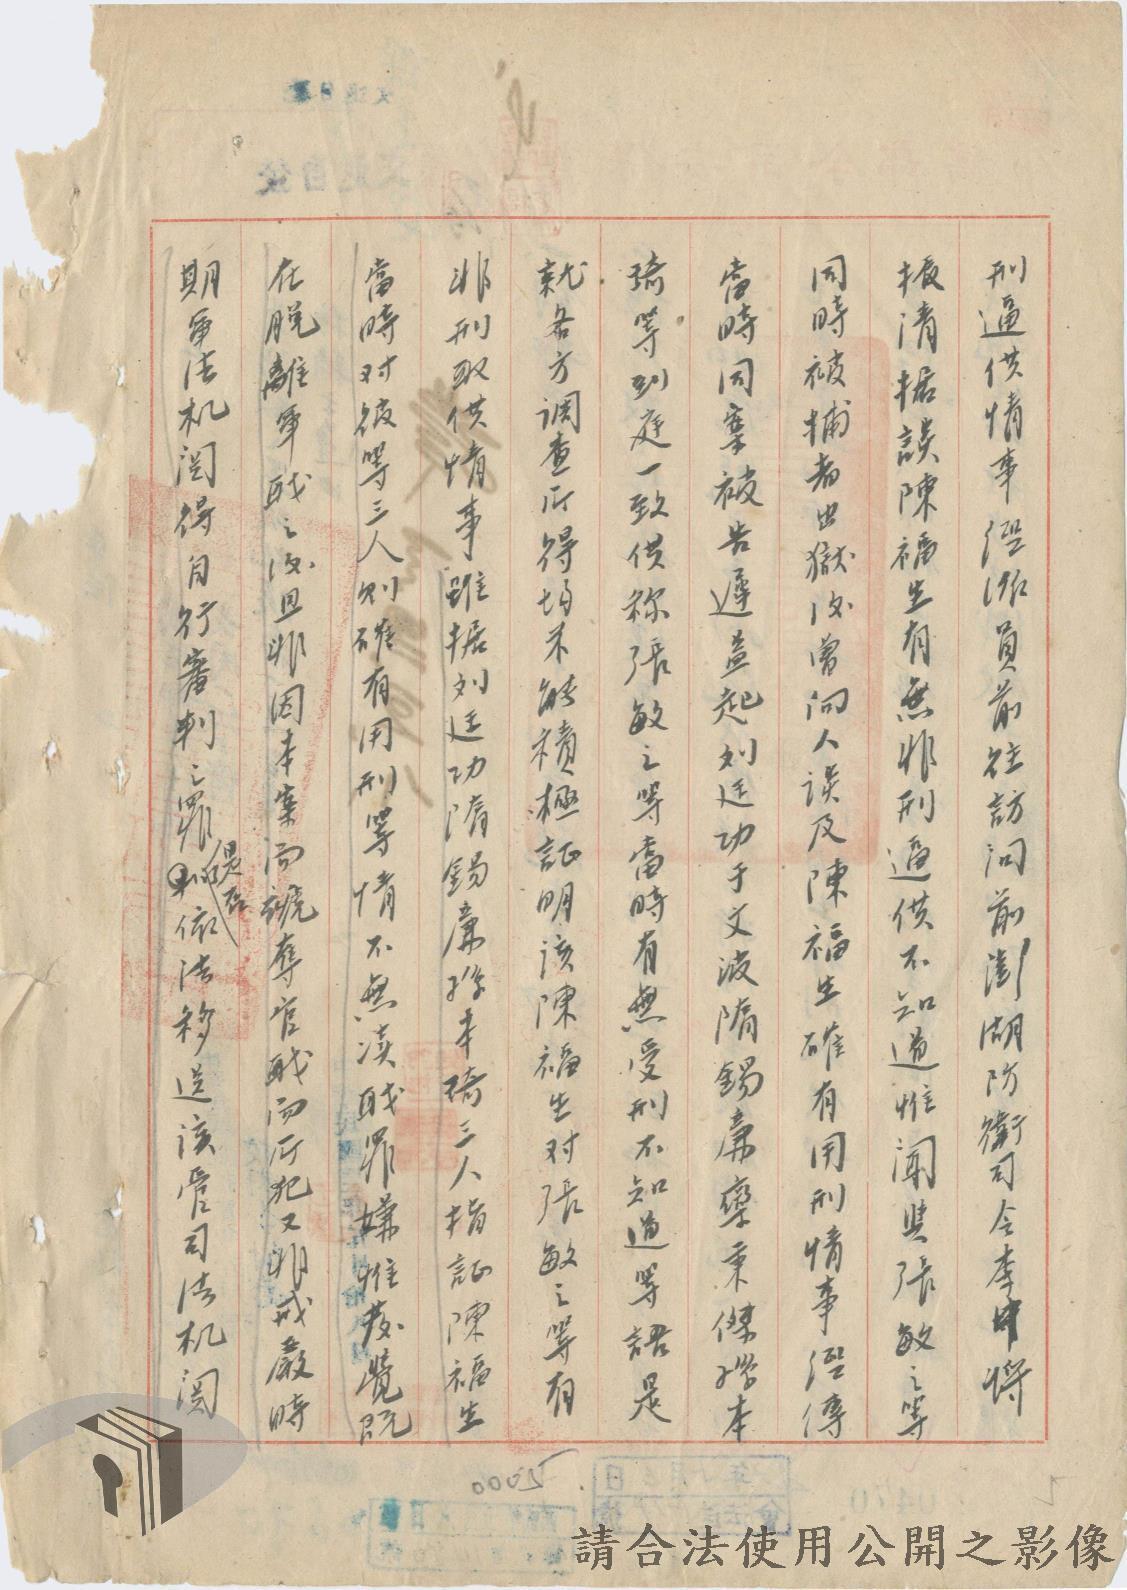 刑逼供情事經派員前往訪问前澎湖防衛司令李中将
振清据談陳福生有無非刑逼供不知道惟聞與張敏之等
同時被捕者出獄后曾向人谈及陳福生確有用刑情事經傳
當時同案被告遲益起刘廷功于文波隋錫廉欒秉傑孫本
琦等到庭一致供称張敏之等當時有無受刑不知道等語是
就各方调查所得均不能積極証明该陳福生对張敏之等有
非刑取供情事雖据刘廷功隋錫廉孫本琦三人指証陳福生
當時对彼等三人则確有用刑等情不無渎职罪嫌惟發覺既
在脱離軍职之後且非因本案而褫奪官职而所犯又非戒嚴時
期軍法机関得自行審判之罪依法移送该管司法机関
5000
0470
請合法使用公開之影像